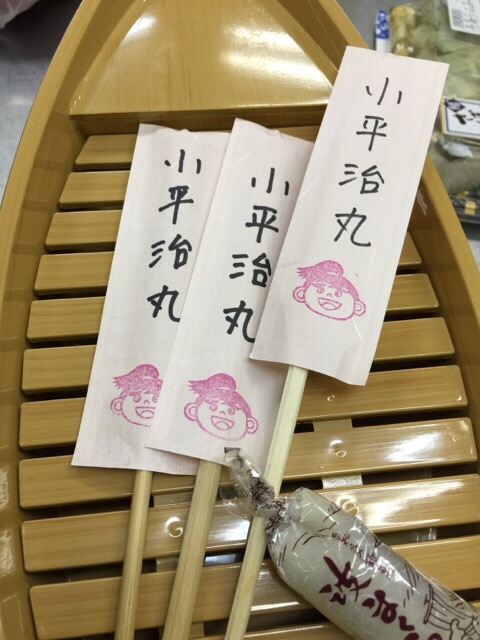 小平治丸
小平治丸
小平治丸